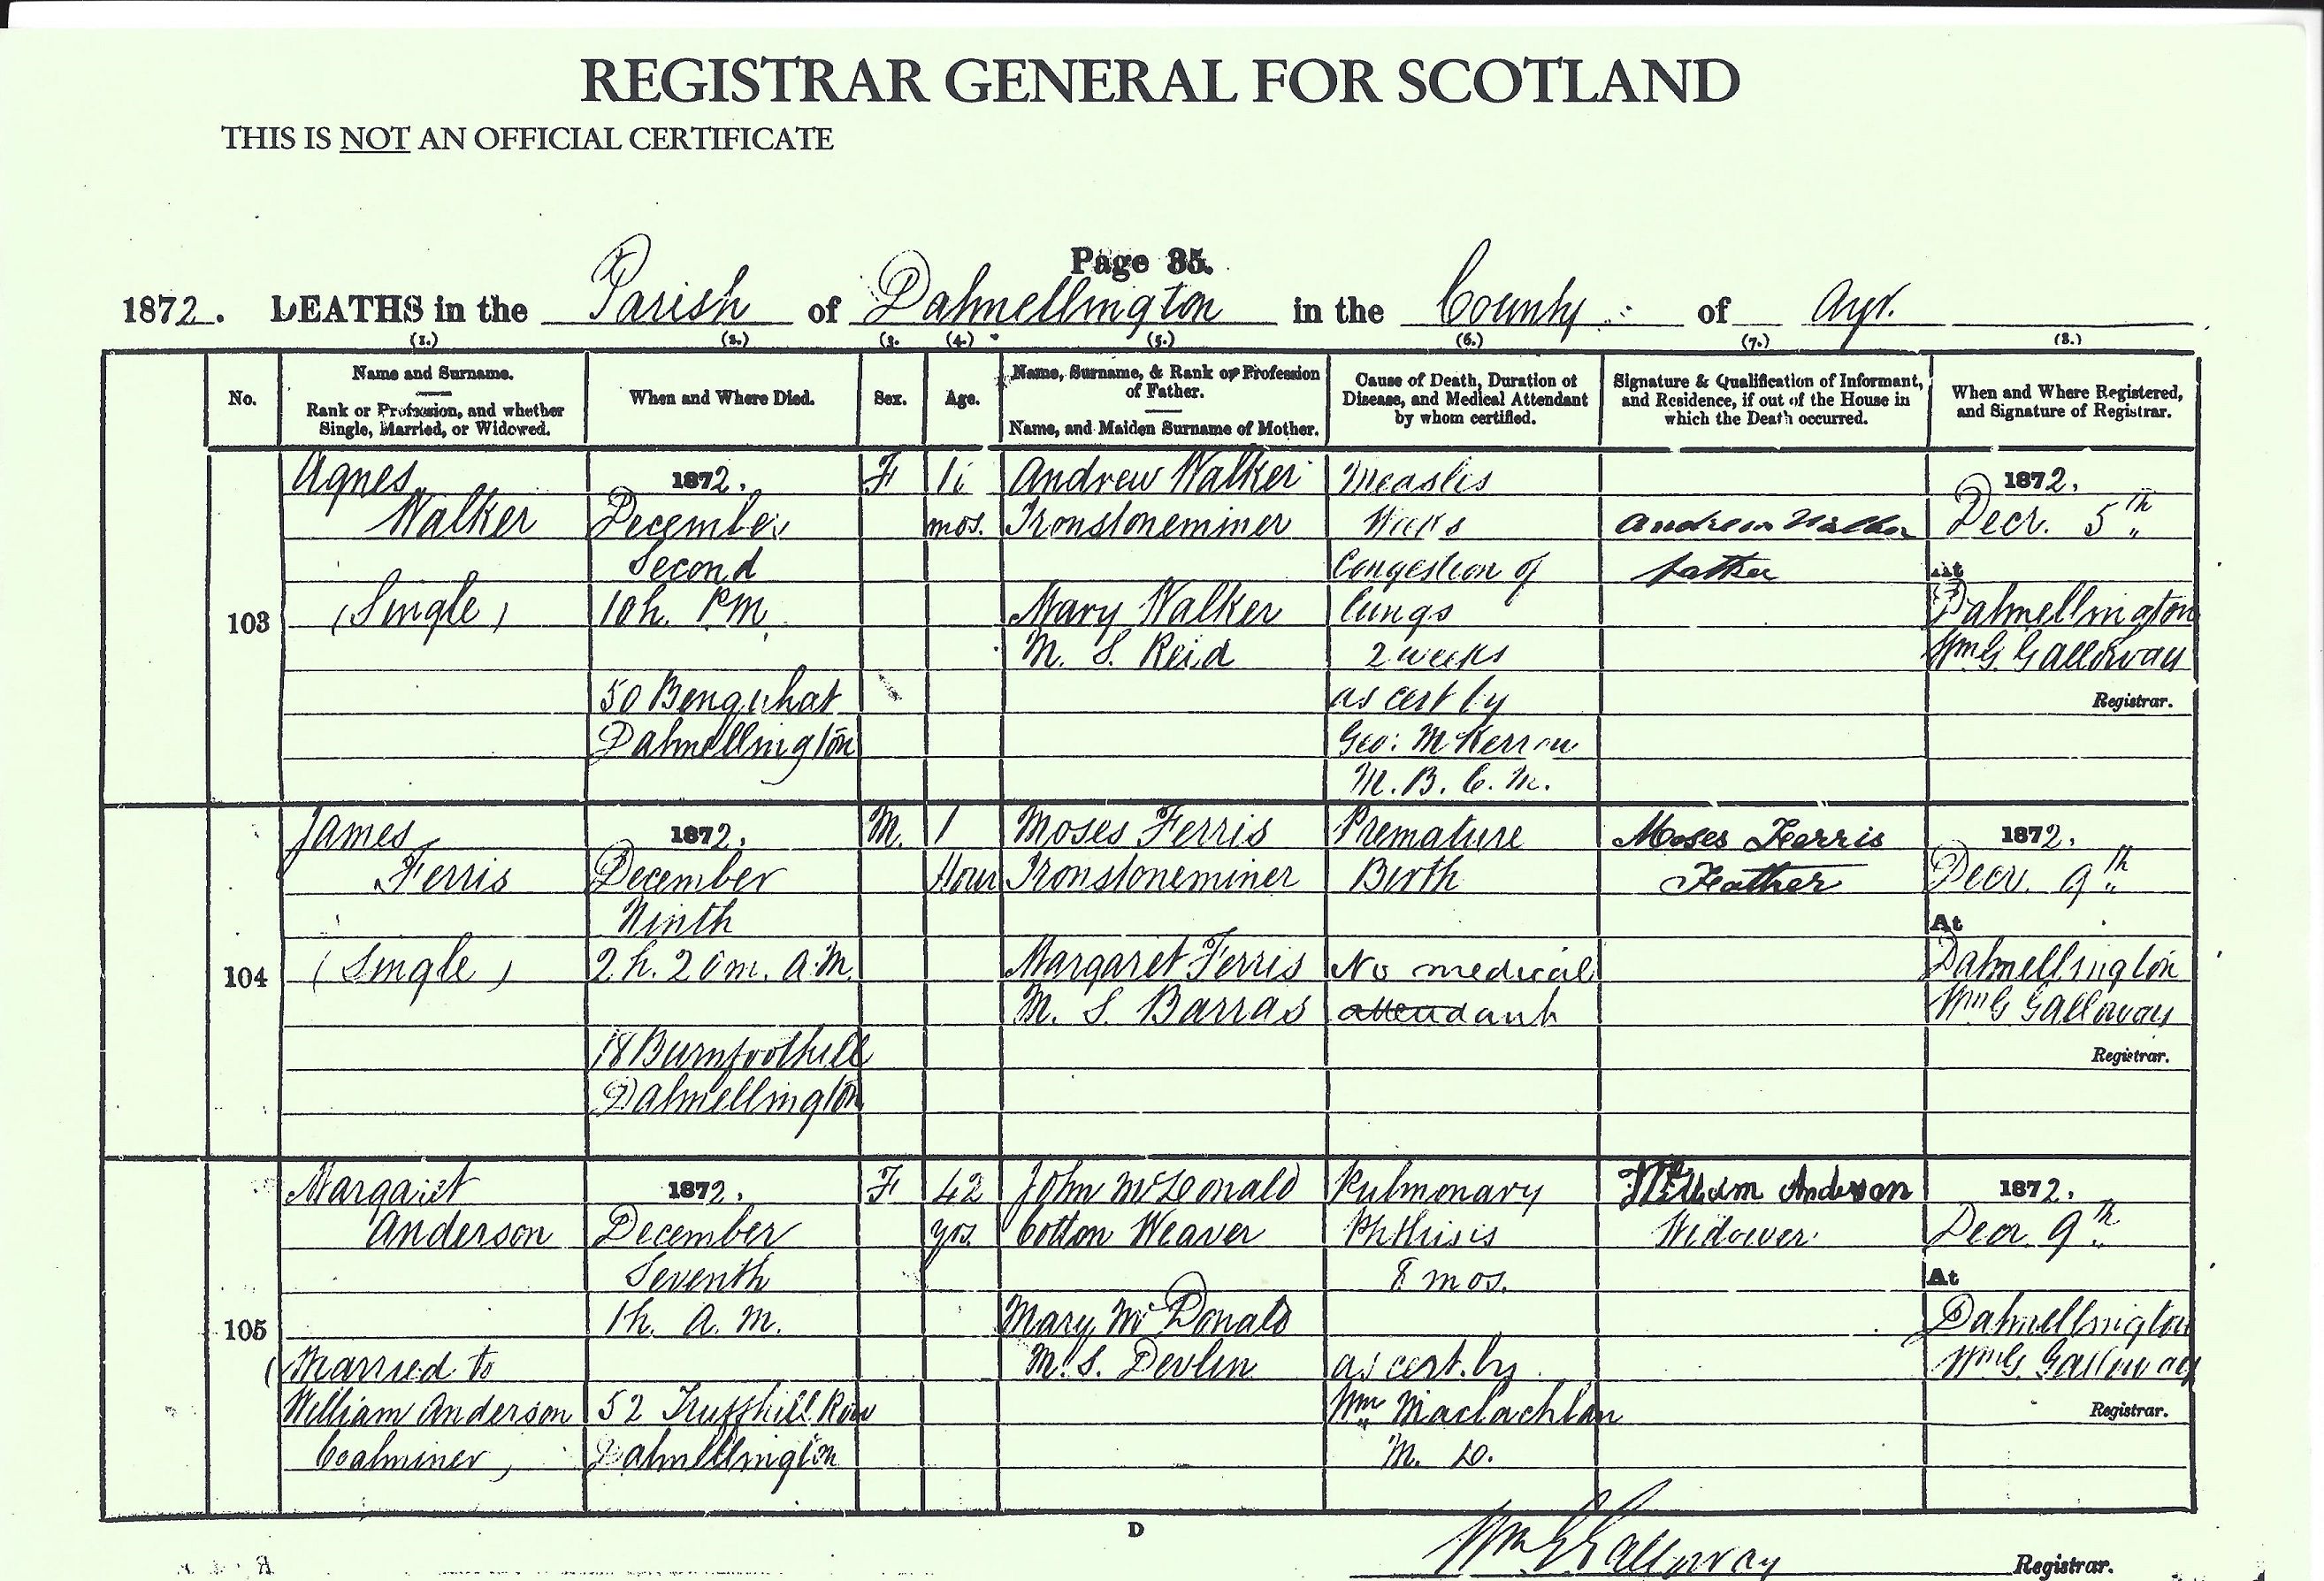 REGISTRAR GENERAL FOR SCOTLAND
THIS IS NOT AN OFFICIAL CERTIFICATE
Page 35.
1872. DEATHS in the Parish of Dalmellington in the County of Ayr.
(1.) (2.) (3. (4.) (5.) (6.) (7.) (8.)
No.
Name and Surname.
Rank or Profession, and whether
Single, Married, or Widowed.
When and Where Died.
Sex.
Age.
Name, Surname, & Rank or Profession
of Father.
Name, and Maiden Surname of Mother.
Cause of Death, Duration of
Disease, and Medical Attendant
by whom certified.
Signature & Qualification of Informant,
and Residence, if out of the House in
which the Death occurred.
When and Where Registered,
and Signature of Registrar.
103
Agnes
Walker
(Single)
1872.
December
Second
10h. PM
50 Benquhat
Dalmellington
F
mos.
Andrew Walker
Ironstoneminer
Mary Walker
M. S. Reid
Measles
Weeks
Congestion of
Lungs
2 weeks
as cert by
Geo: McKerrow
M. B. C. M.
Andrew Walker
father
1872.
Decr. 5th
At
Dalmellington
Wm G. Galloway
Registrar.
104
James
Ferris
(Single)
1872.
December
Ninth
2 h. 20 m. A.M.
18 Burnfoothill
Dalmellington
M.
1
Hour
Moses Ferris
Ironstoneminer
Margaret Ferris
M. S. Barras
Premature
Birth
No medical
attendant
Moses Ferris
Father
1872.
Decr. 9th
At
Dalmellington
Wm G Galloway
Registrar.
105
Margaret
Anderson
(Married to
William Anderson
Coalminer,
1872.
December
Seventh
1h. A. M.
52 Truffhill Row
Dalmellington
F
42
yrs.
John McDonald
Cotton Weaver
Mary McDonald
M. S. Devlin
Pulmonary
Phthisis
8 mos.
as cert. by
Wm Maclachlan
M. D.
William Anderson
Widower.
1872.
Decr 9th
At
Dalmellington
Wm G. Galloway
Registrar.
D
Wm G Galloway
Registrar.